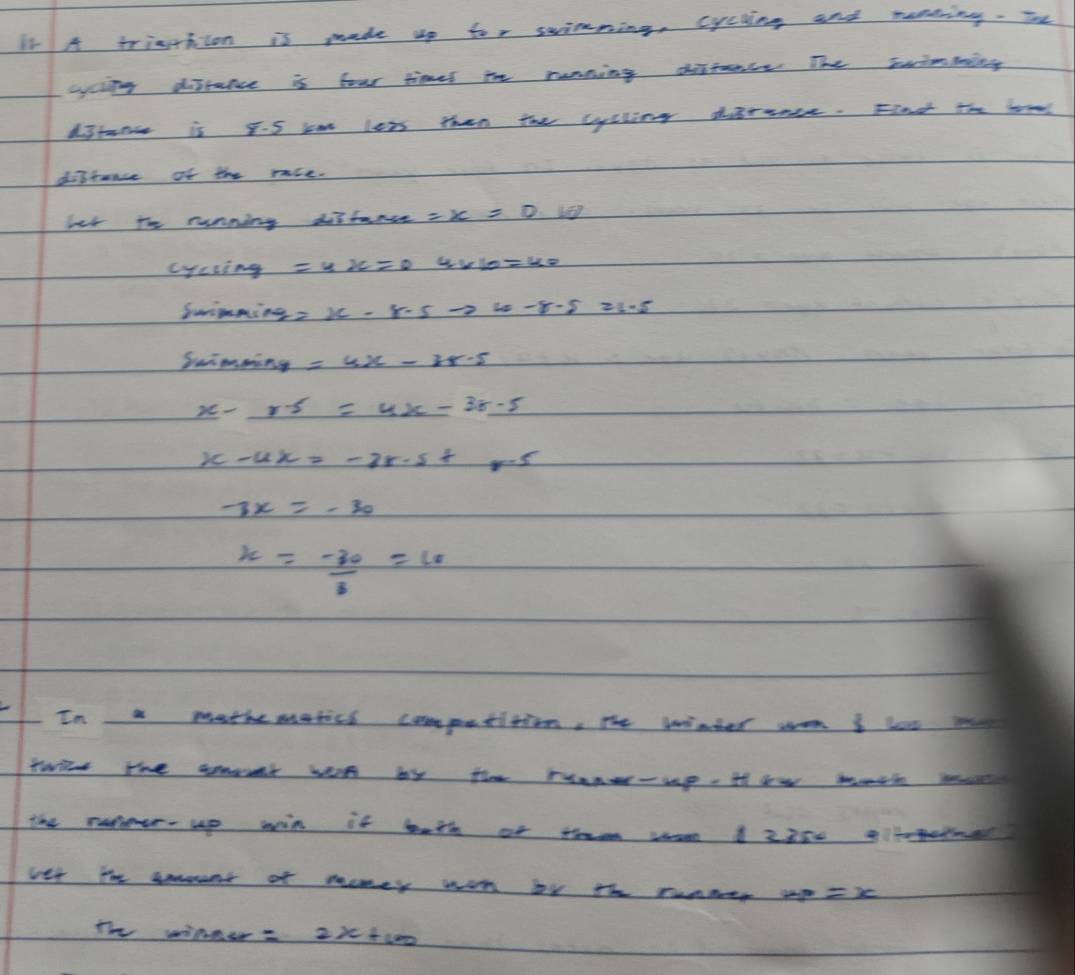 A triathlon is made up for swimming, cycling and running. The
cycling distance is four times the running distance. The swimming
distance is 8.5 km less then the cycling distance. Find the total
distance of the race.
Let the running distance = x = 0 10
cycling = 4x = 0 4x10=40
Swimming = x - 8.5 → 10 - 8.5 = 1.5
Swimming = 4x - 38.5
x - 8.5 = 4x - 38.5
x - 4x = -38.5 + 8.5
-3x = - 30
x = -30/3 = 10
In a mathematics competition, the winner won $ 100
twice the amount won by the runner-up. How much
the runner-up win if both of them won $ 2350 altogether?
Let the amount of money won by the runner up = x
The winner = 2x+100